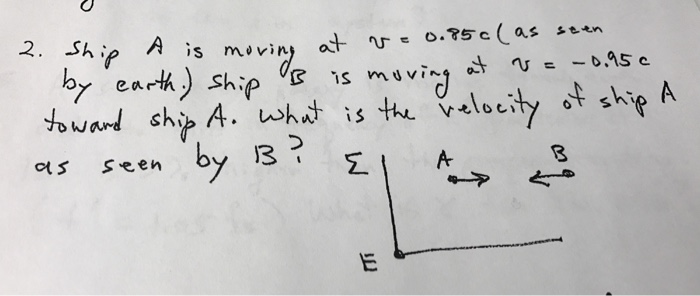 2. Ship A is moving at v = 0.85c (as seen
by earth.) Ship B is moving at v = -0.95c
toward ship A. What is the velocity of ship A
as seen by B?
Σ A B
E